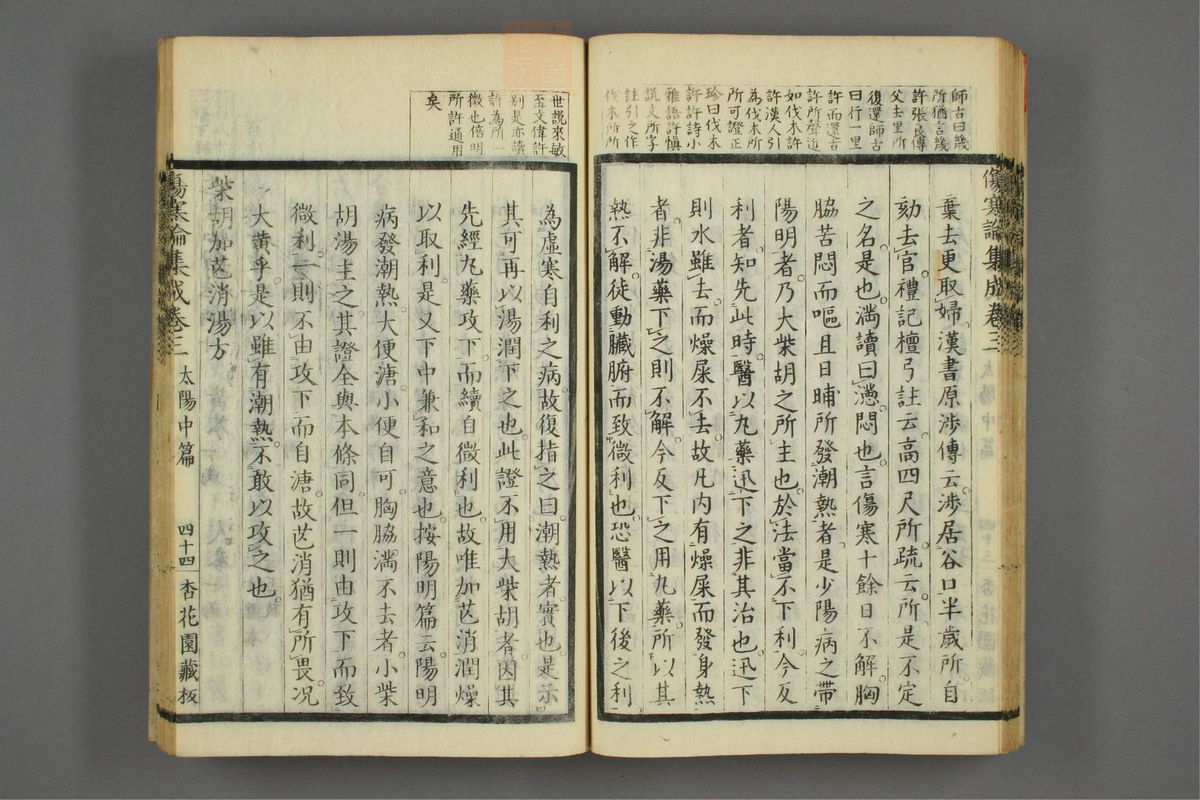 師古曰幾
所猶言幾
許張良傳
父去里所
復還師古
曰行一里
許而還古
許所聲道
如伐木許
許漢人引
為伐木所
所可證正
珍曰伐木
許許詩小
雅語許愼
說文所字
註引之作
伐木所所
傷寒論集成卷三 太陽中篇 四十三 杏花園藏板
棄去更取婦漢書原涉傳云涉居谷口半歲所自
劾去官禮記檀弓註云高四尺所疏云所是不定
之名是也滿讀曰懣懣悶也言傷寒十餘日不解胸
脇苦悶而嘔且日晡所發潮熱者是少陽病之帶
陽明者乃大柴胡之所主也於法當不下利今反
利者知先此時醫以丸藥迅下之非其治也迅下
則水雖去而燥屎不去故凡内有燥屎而發身熱
者非湯藥下之則不解今反下之用丸藥所以其
熱不解徒動臟腑而致微利也恐醫以下後之利
世說來敏
至文偉許
别是亦讀
許為所一
徵也倍明
所許通用
矣
為虛寒自利之病故復指之曰潮熱者實也是示
其可再以湯潤下之也此證不用大柴胡者因其
先經丸藥攻下而續自微利也故唯加芒消潤燥
以取利是又下中兼和之意也按陽明篇云陽明
病發潮熱大便溏小便自可胸脇滿不去者小柴
胡湯主之其證全與本條同但一則由攻下而致
微利一則不由攻下而自溏故芒消猶有所畏况
大黃乎是以雖有潮熱不敢以攻之也
柴胡加芒消湯方
傷寒論集成卷三 太陽中篇 四十四 杏花園藏板